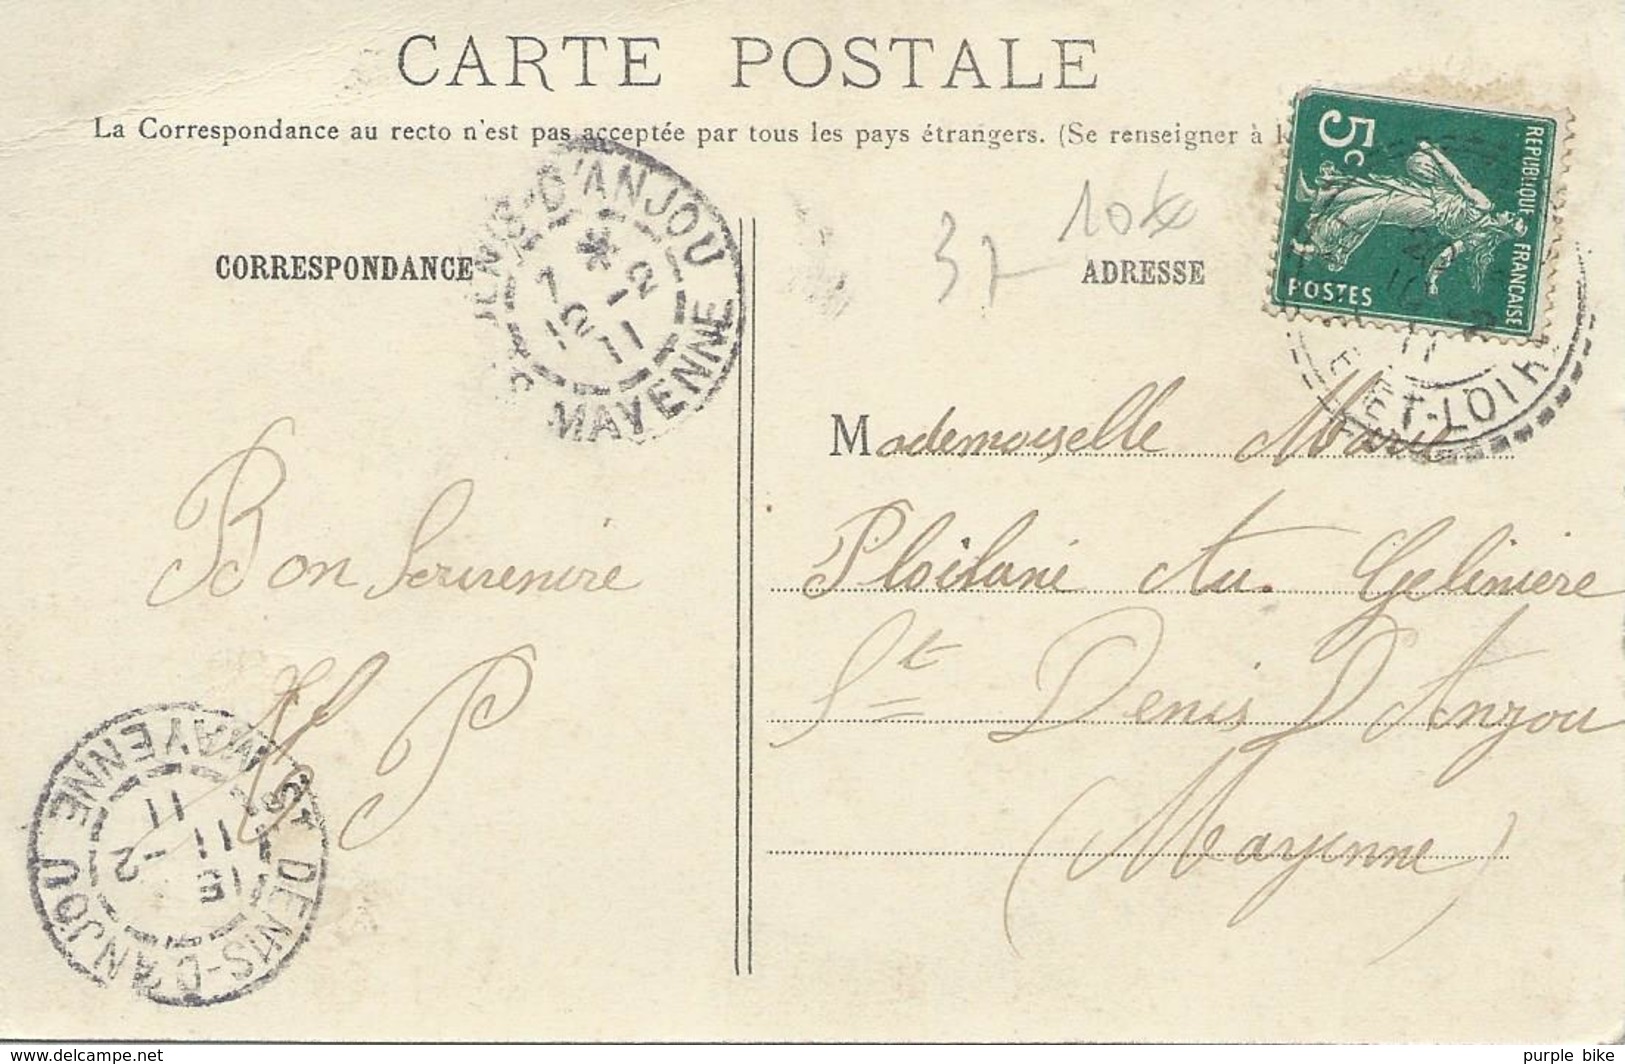 CARTE POSTALE
La Correspondance au recto n'est pas acceptée par tous les pays étrangers. (Se renseigner à l
CORRESPONDANCE
ADRESSE
37
10
5c
REPUBLIQUE FRANCAISE
POSTES
ENIS-D'ANJOU
MAYENNE
11
ET-LOIR
Mademoiselle Marie
Au Geliniere
St Denis D'Anjou
(Mayenne)
Bon Souvenire
P
ST DENIS-D'ANJOU
MAYENNE
15
11
-2
11
www.delcampe.net
purple bike